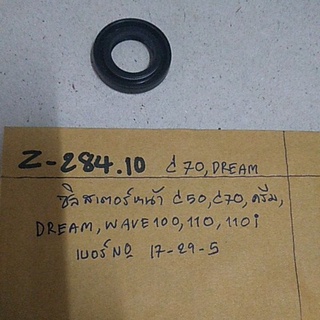 Z-284.10 C70, DREAM
ซีลสเตอร์หน้า C50, C70, ดรีม,
DREAM, WAVE100, 110, 110i
เบอร์ NO 17-29-5